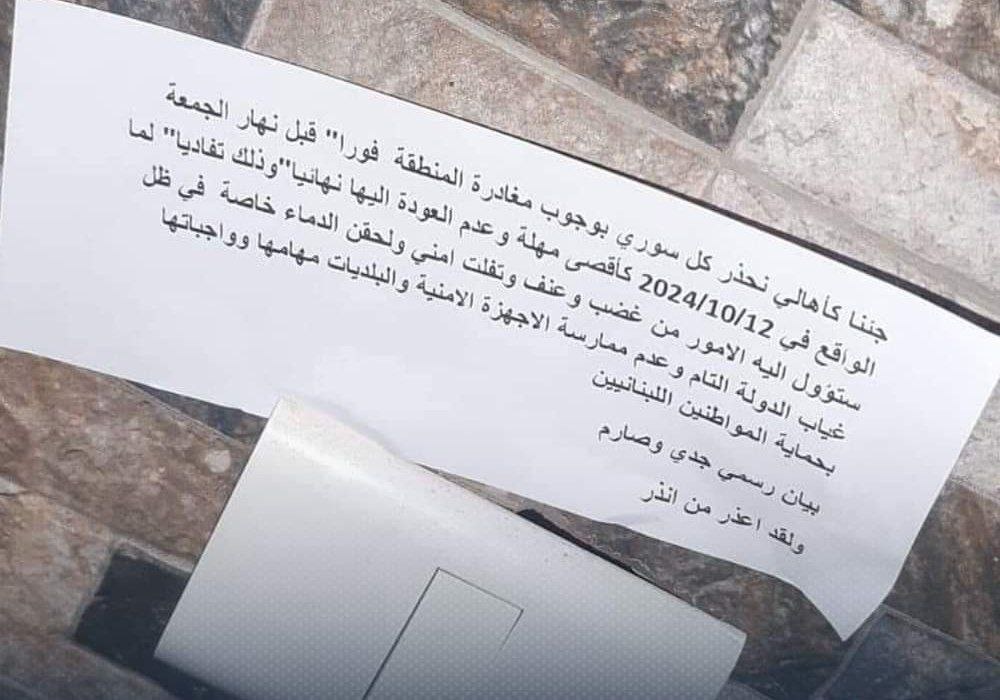 جئنا كأهالي نحذر كل سوري بوجوب مغادرة المنطقة فورا" قبل نهار الجمعة
الواقع في 2024/10/12 كأقصى مهلة وعدم العودة اليها نهائيا"وذلك تفاديا" لما
ستؤول اليه الامور من غضب وعنف وتفلت امني ولحقن الدماء خاصة في ظل
غياب الدولة التام وعدم ممارسة الاجهزة الامنية والبلديات مهامها وواجباتها
بحماية المواطنين اللبنانيين
بيان رسمي جدي وصارم
ولقد اعذر من انذر